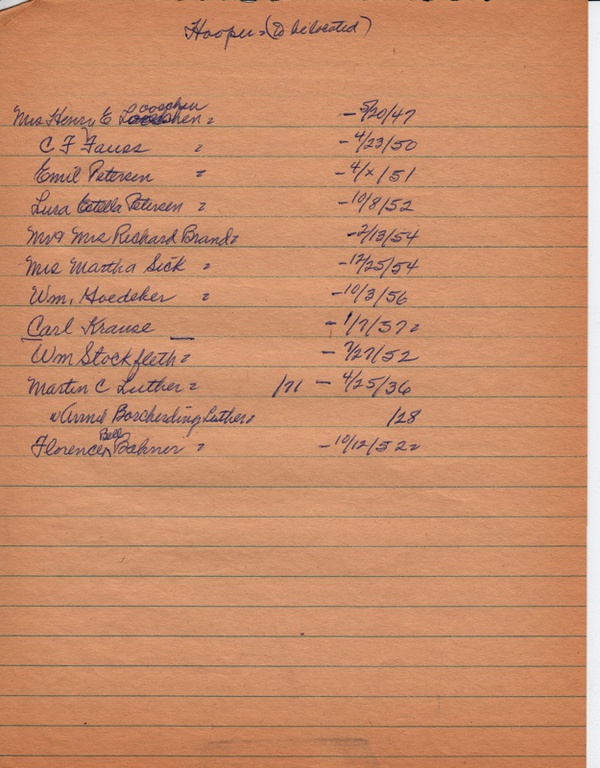 Hooper = (To be located)
Mrs Henry E Looschen = - 5/20/47
C F Fauss = - 4/23/50
Emil Petersen = - 4/x/51
Lura Estella Petersen = - 10/8/52
Mr & Mrs Richard Brand = - 2/13/54
Mrs Martha Sick = - 12/25/54
Wm. Hoedeker = - 10/3/56
Carl Krause - 1/7/57 =
Wm Stockfleth = - 7/27/52
Martin C Luther = /71 - 4/25/36
Borcherding Luther = /28
Florence Bell Bahner = - 10/12/52 =